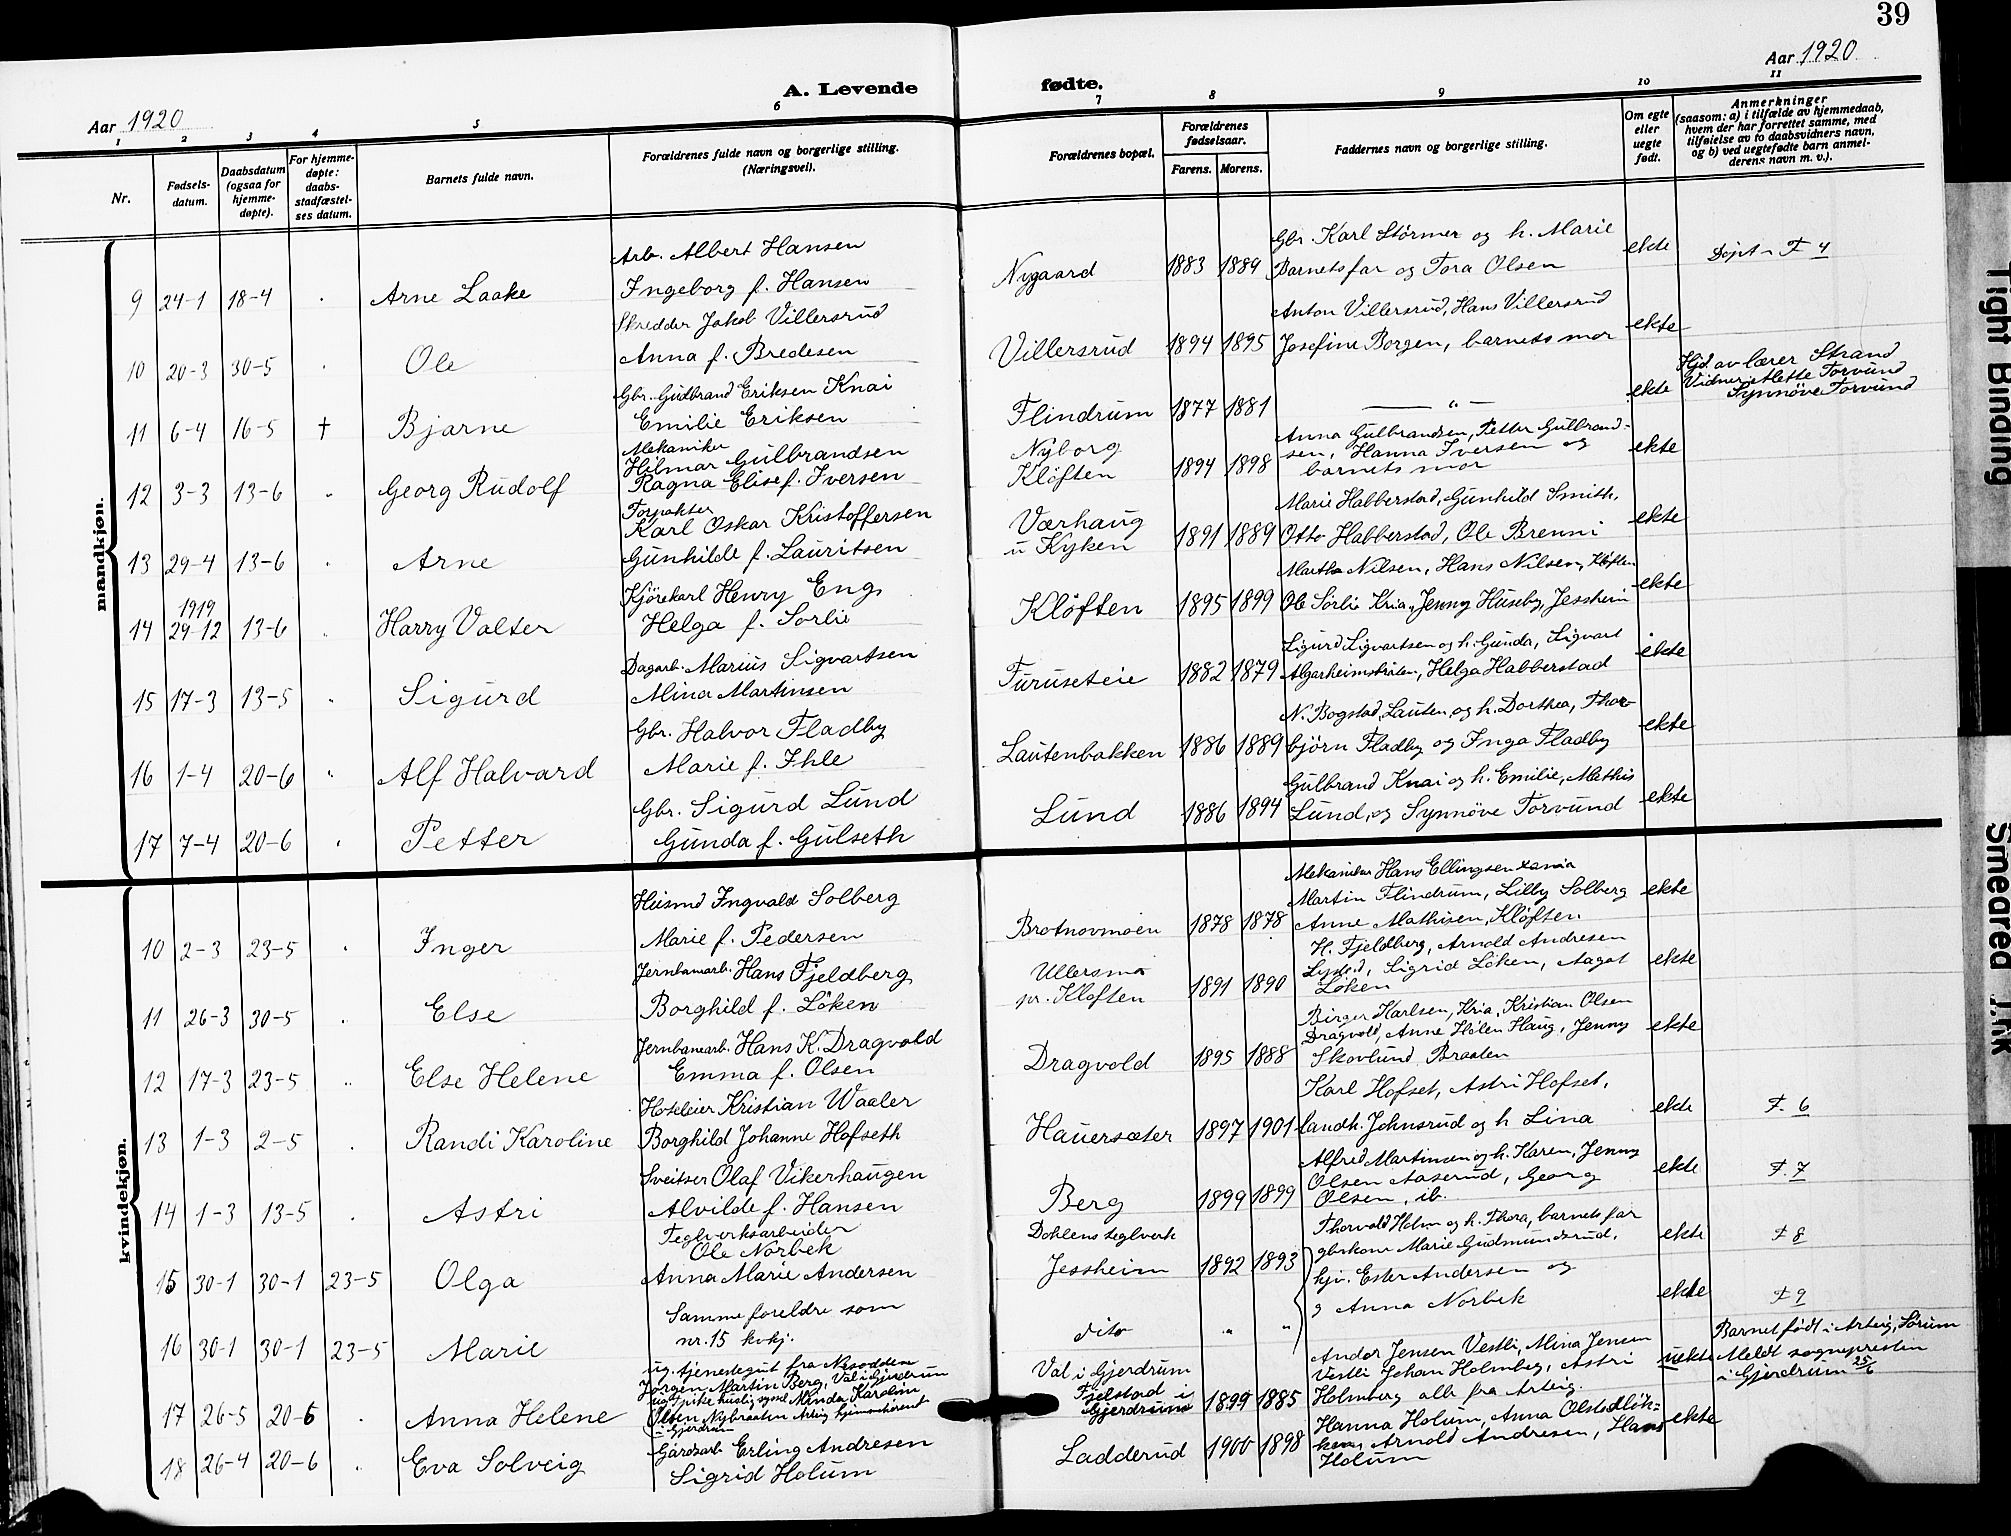 39
Aar 1920
A. Levende fødte.
Aar 1920
1 2 3 4 5 6 7 8 9 10 11
Nr.
Fødsels-datum.
Daabsdatum (ogsaa for hjemme-døpte).
For hjemme-døpte: daabs-stadfæstel-ses datum.
Barnets fulde navn.
Forældrenes fulde navn og borgerlige stilling. (Næringsvei).
Forældrenes bopæl.
Forældrenes fødselsaar.
Farens. Morens.
Faddernes navn og borgerlige stilling.
Om egte eller uegte født.
Anmerkninger
(saasom: a) i tilfælde av hjemmedaab,
hvem der har forrettet samme, med
tilføielse av to daabsvidners navn,
og b) ved uegtefødte barn anmel-
derens navn m. v.).
mandkjøn.
Arb. Albert Hansen
Gbr. Karl Størmer og h. Marie
9 24-1 18-4 Arne Laake Ingeborg f. Hansen Nygaard 1883 1889 Barnets far og Tora Olsen ekte Døpt - F 4
Skredder Jakob Villersrud
Anton Villersrud, Hans Villersrud
10 20-3 30-5 Ole Anna f. Bredesen Villersrud 1894 1895 Josefine Borgen, barnets mor ekte
Gbr. Gudbrand Eriksen Knai
11 6-4 16-5 † Bjarne Emilie Eriksen Flindrum 1877 1881 — " — ekte
Hjd. av lærer Strand
Vidner: Mette Torvund
Synnöve Torvund
Mekaniker
Hilmar Gulbrandsen
12 3-3 13-6 Georg Rudolf Ragna Elise f. Iversen
Nyborg
Kløften 1894 1898
Anna Gulbrandsen, Petter Gulbrand-
sen, Hanna Iversen og
barnets mor ekte
Forpakter
Karl Oskar Kristoffersen
13 29-4 13-6 Arne Gunhilde f. Lauritsen
Værhaug
u Kyken 1891 1889
Marie Habberstad, Gunhild Smith,
Otto Habberstad, Ole Brenni ekte
Kjörekarl Henry Eng
1919
14 29-12 13-6 Harry Valter Helga f. Sorlie Kløften 1895 1899
Martha Nilsen, Hans Nilsen, Kløften
Ole Sorlie Kria, Jenny Huseby, Jessheim ekte
Dagarb. Marius Sigvartsen
15 17-3 13-5 Sigurd Mina Martinsen Furuseteie 1882 1879
Sigurd Sigvartsen og h. Gunda, Sigvart
Algarheimstråten, Helga Habberstad ekte
Gbr. Halvor Fladby
16 1-4 20-6 Alf Halvard Marie f. Ihle Lautenbakken 1886 1889
N. Bogstad, Lauten, og h. Dorthea, Thor-
björn Fladby og Inga Fladby ekte
Gbr. Sigurd Lund
17 7-4 20-6 Petter Gunda f. Gulseth Lund 1886 1894
Gulbrand Knai og h. Emilie, Mathis
Lund, og Synnöve Torvund ekte
kvindekjøn.
Husmd Ingvald Solberg
10 2-3 23-5 Inger Marie f. Pedersen Brotnovmoen 1878 1878
Mekaniker Hans Ellingsen
Martin Flindrum, Lilly Solberg
Anne Mathisen, Kløften ekte
Jernbanarb. Hans Fjeldberg
11 26-3 30-5 Else Borghild f. Löken
Ullersmo
pr. Kloften 1891 1890
H. Fjeldberg, Arnold Andresen
Sigrid Löken, Aagot
Löken ekte
Jernbanearb. Hans K. Dragvold
12 17-3 23-5 Else Helene Emma f. Olsen Dragvold 1895 1888
Birger Karlsen, Kria, Kristian Olsen
Dragvold, Anne Helen Haug, Jenny
Skovlund Braaten ekte
Hoteleier Kristian Waaler
13 1-3 2-5 Randi Karoline Borghild Johanne Hofseth Hauersæter 1897 1901
Karl Hofset, Astri Hofset,
landh. Johnsrud og h Lina ekte F. 6
Sveitser Olaf Vikerhaugen
14 1-3 13-5 Astri Alvilde f. Hansen Berg 1899 1899
Alfred Martinsen og h. Karen, Jenny
Olsen Aaserud, Georg
Olsen, ib. ekte F. 7
Teglverksarbeider
Ole Norbek
15 30-1 30-1 23-5 Olga Anna Marie Andersen
Dohlens teglverk
Jessheim 1892 1893
Thorvald Holm og h. Thora, barnets far
gbrkone Marie Gudmundsrud,
hjv. Ester Andersen og
Anna Norbek ekte F 8
Samme foreldre som
16 30-1 30-1 23-5 Marie nr. 15 kvkj. dito " " ekte F 9
ug. tjenestegut fra Nesodden
Jørgen Martin Berg, Val i Gjerdrum
Minda Karoline
Olsen Nybraaten Arteig hjemmehörent
i Gjerdrum
17 26-5 20-6 Anna Helene
Val i Gjerdrum
Fjelstad i
Gjerdrum 1899 1885
Andor Jensen Vestli, Mina Jensen
Vestli Johan Holmberg, Astri
Holmberg alle fra Arteig. uekte
Barnet født i Arteig, Sörum
Meldt sognepresten
i Gjerdrum 25/6
Gårdsarb Erling Andresen
18 26-4 20-6 Eva Solveig Sigrid Holum Ladderud 1900 1898
Hanna Holum, Anna Olstadløk-
ken, Arnold Andresen, Hans
Holum ekte
Tight Binding
Smeared Ink